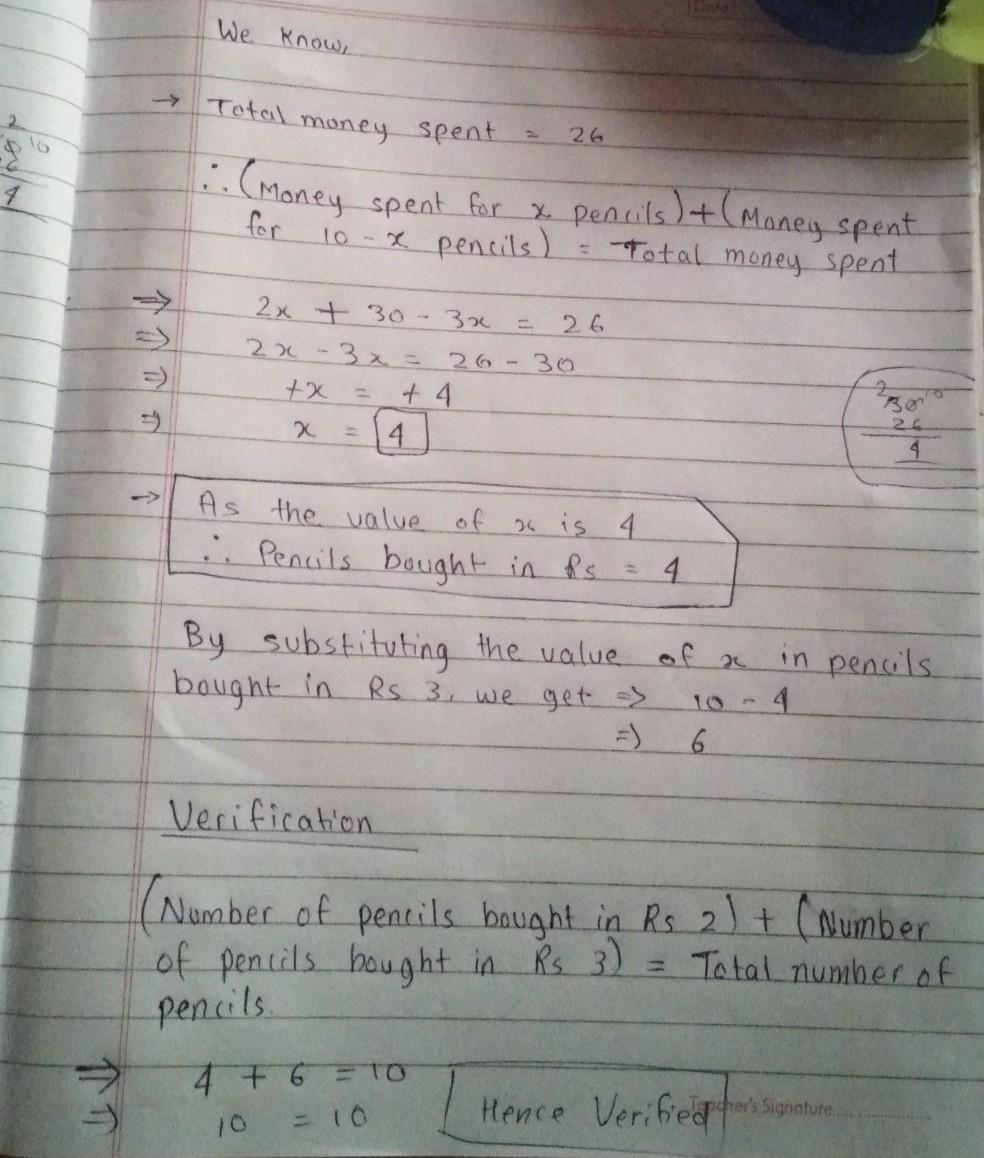 Date
We know,
→ Total money spent = 26
∴ (Money spent for x pencils) + (Money spent
for 10 - x pencils) = Total money spent
⇒ 2x + 30 - 3x = 26
⇒ 2x - 3x = 26 - 30
⇒ +x = + 4
⇒ x = 4
2 10
30
26
4
→ As the value of x is 4
∴ Pencils bought in Rs = 4
By substituting the value of x in pencils
bought in Rs 3, we get ⇒ 10 - 4
⇒ 6
Verification
(Number of pencils bought in Rs 2) + (Number
of pencils bought in Rs 3) = Total number of
pencils.
⇒ 4 + 6 = 10
⇒ 10 = 10 Hence Verified
Teacher's Signature